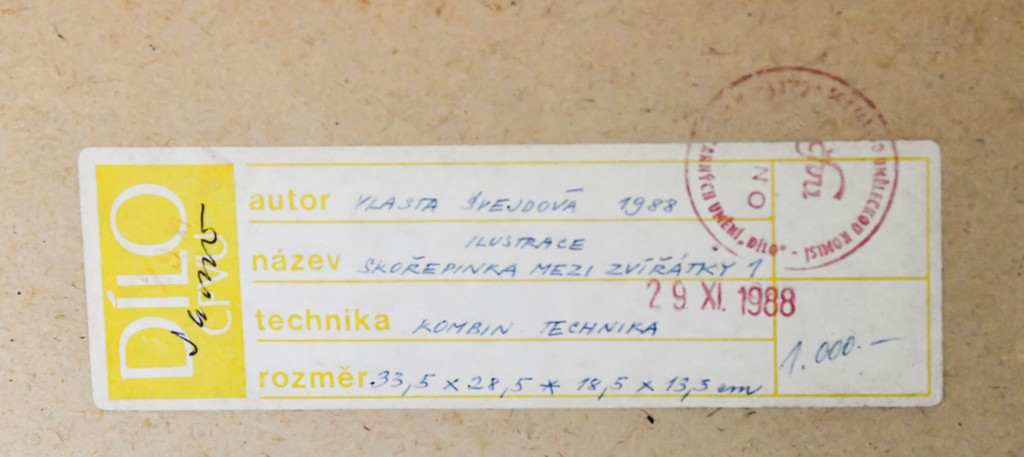 DÍLO
ČFVU
autor VLASTA ŠVEJDOVÁ 1988
ILUSTRACE
název SKOŘEPINKA MEZI ZVÍŘÁTKY 1
29 XI. 1988
technika KOMBIN. TECHNIKA
rozměr 33,5 x 28,5 * 18,5 x 13,5 cm
1.000.—
UMĚLECKOU KOMISÍ
UMĚNÍ „DÍLO"